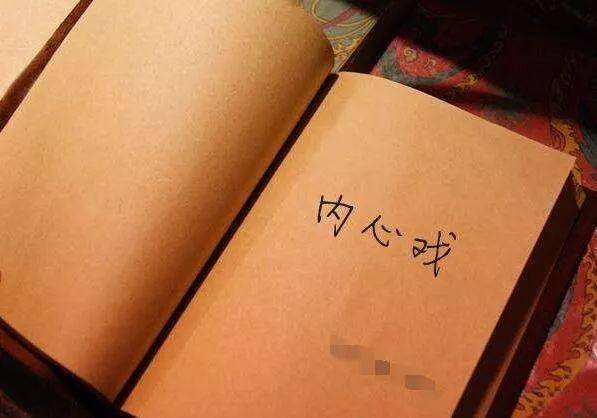 内心戏